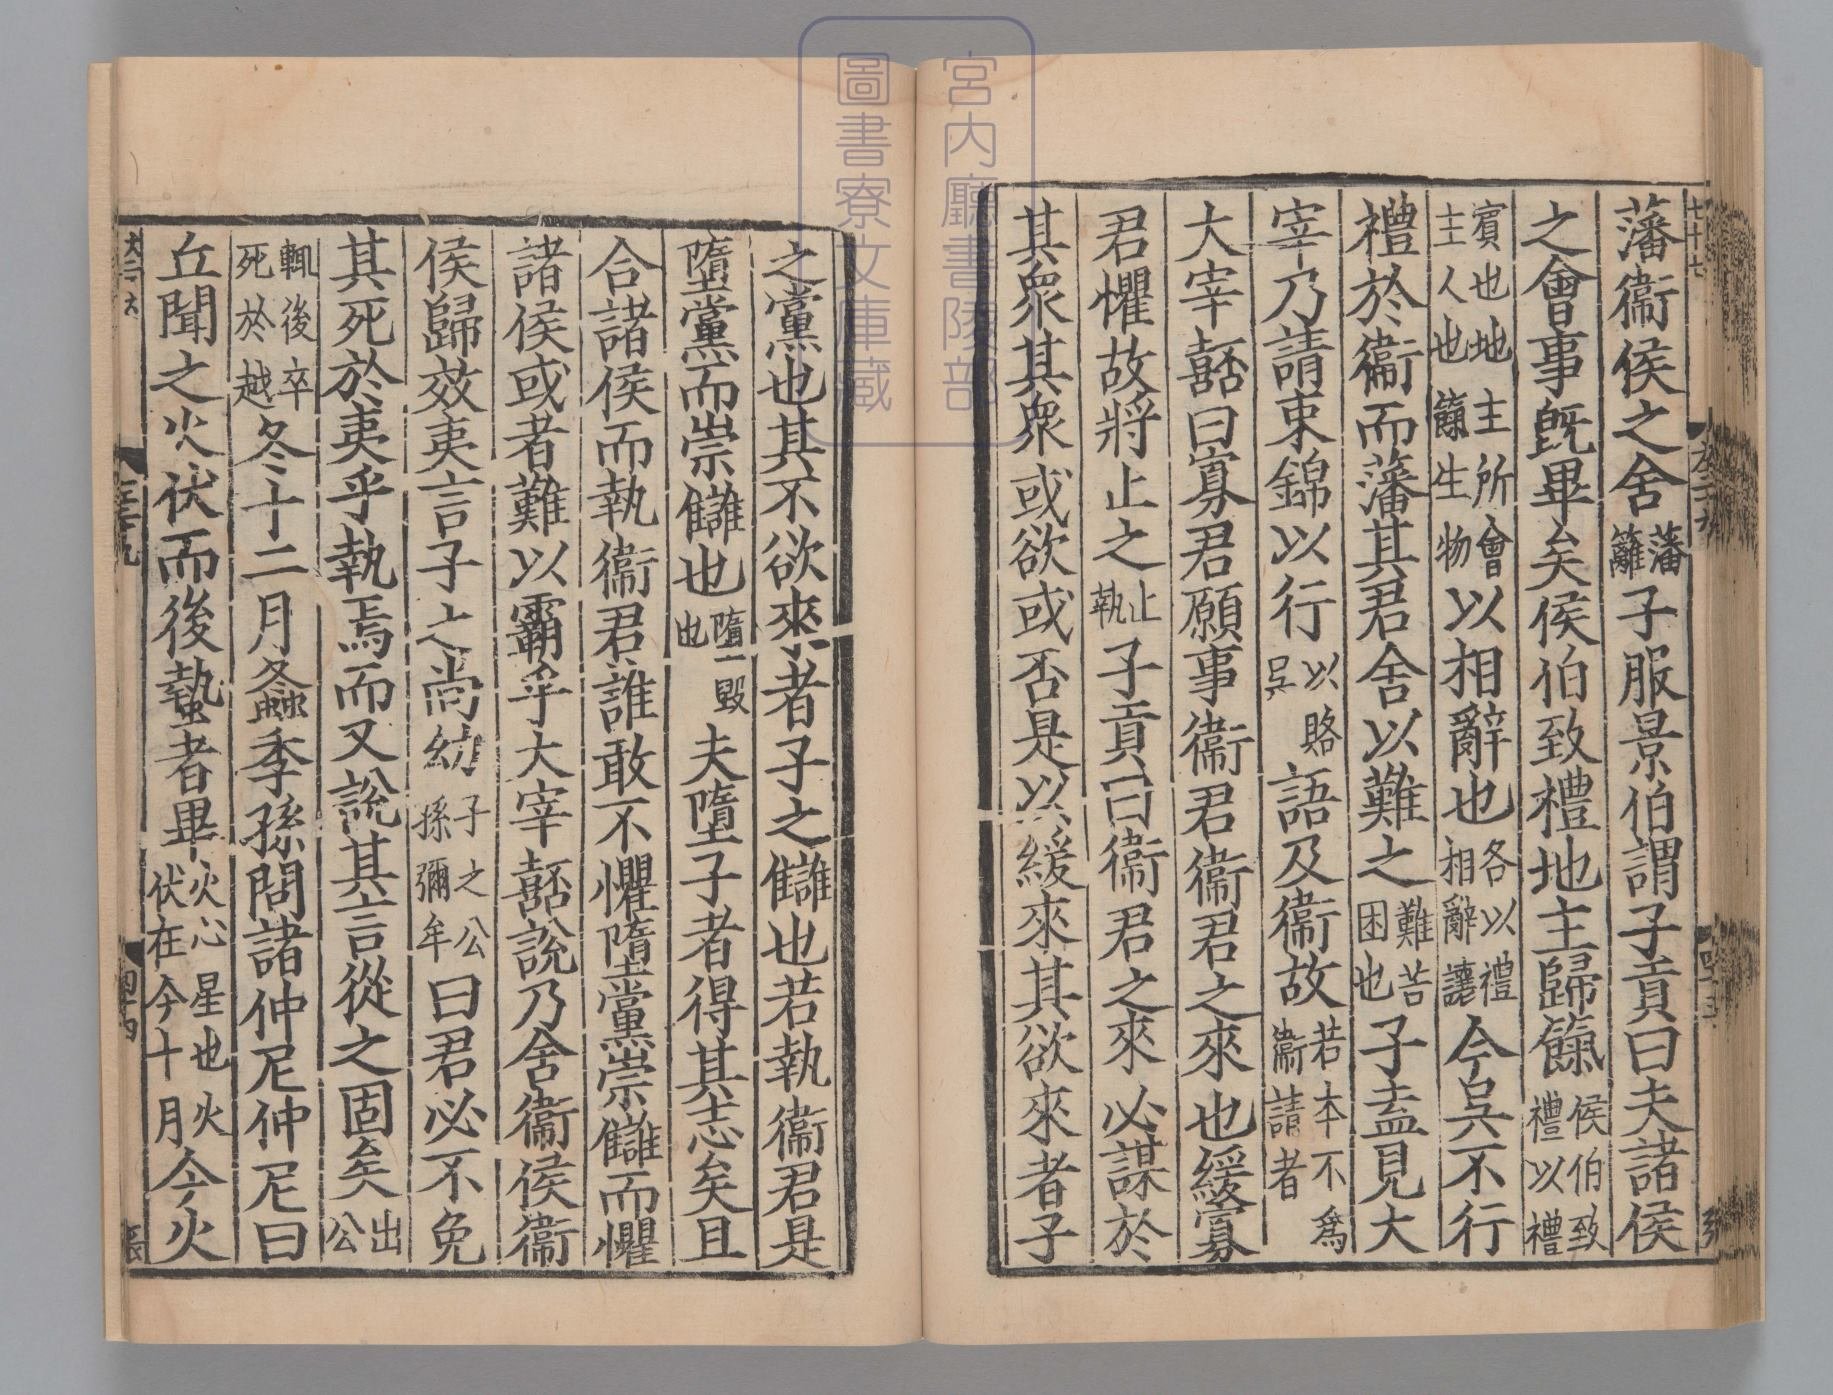 宮内廳書陵部
圖書寮文庫藏
藩衞侯之舍藩籬子服景伯謂子貢曰夫諸侯
之會事旣畢矣侯伯致禮地主歸餼侯伯致禮以禮
賓也地主所會主人也餼生物以相辭也各以禮相辭讓今吳不行
禮於衞而藩其君舍以難之難苦困也子盍見大
宰乃請束錦以行以賂吳語及衞故若本不爲衞請者
大宰嚭曰寡君願事衞君衞君之來也緩寡
君懼故將止之止執子貢曰衞君之來必謀於
其衆其衆或欲或否是以緩來其欲來者子
之黨也其不欲來者子之讎也若執衞君是
墮黨而崇讎也墮毀也夫墮子者得其志矣且
合諸侯而執衞君誰敢不懼墮黨崇讎而懼
諸侯或者難以霸乎大宰嚭說乃舍衞侯衞
侯歸效夷言子之尚幼子之公孫彌牟曰君必不免
其死於夷乎執焉而又說其言從之固矣出公
輒後卒死於越冬十二月螽季孫問諸仲尼仲尼曰
丘聞之火伏而後蟄者畢火心星也火伏在今十月今火